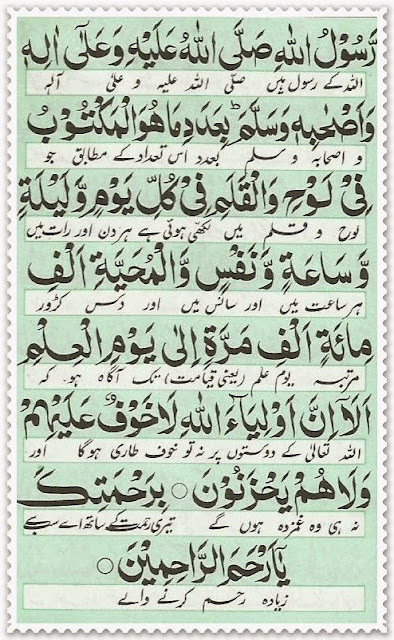 رَّسُوْلُ اللهِ صَلَّى اللهُ عَلَيْهِ وَعَلٰٓى اٰلِهٖ
اللہ کے رسول ہیں صلی اللہ علیہ و علٰی آلہٖ
وَاَصْحٰبِهٖ وَسَلَّمَ ؕ بِعَدَدِ مَا هُوَ الْمَكْتُوْبُ
و اصحابہ و سلم بعدد اس تعداد کے مطابق جو
فِیْ لَوْحِ وَالْقَلَمِ فِیْ كُلِّ يَوْمٍ وَّلَيْلَةٍ
لوح و قلم میں لکھی ہوئی ہے ہر دن اور رات میں
وَّسَاعَةٍ وَّنَفْسٍ وَّالْمُحَيَّةِ اَلْفِ
ہر ساعت میں اور سانس میں اور دس کڑور
مِائَةِ اَلْفِ مَرَّةٍ اِلٰى يَوْمِ الْعِلْمِ
مرتبہ یوم علم (یعنی قیامت) تک آگاہ ہو کہ
اَلَآ اِنَّ اَوْلِيَآءَ اللهِ لَا خَوْفٌ عَلَيْهِمْ
اللہ تعالیٰ کے دوستوں پر نہ تو خوف طاری ہو گا اور
وَلَا هُمْ يَحْزَنُوْنَ ○ بِرَحْمَتِكَ
نہ ہی وہ غمزدہ ہوں گے تیری رحمت کے ساتھ اے سب سے
يَآ اَرْحَمَ الرَّاحِمِيْنَ ○
زیادہ رحم کرنے والے